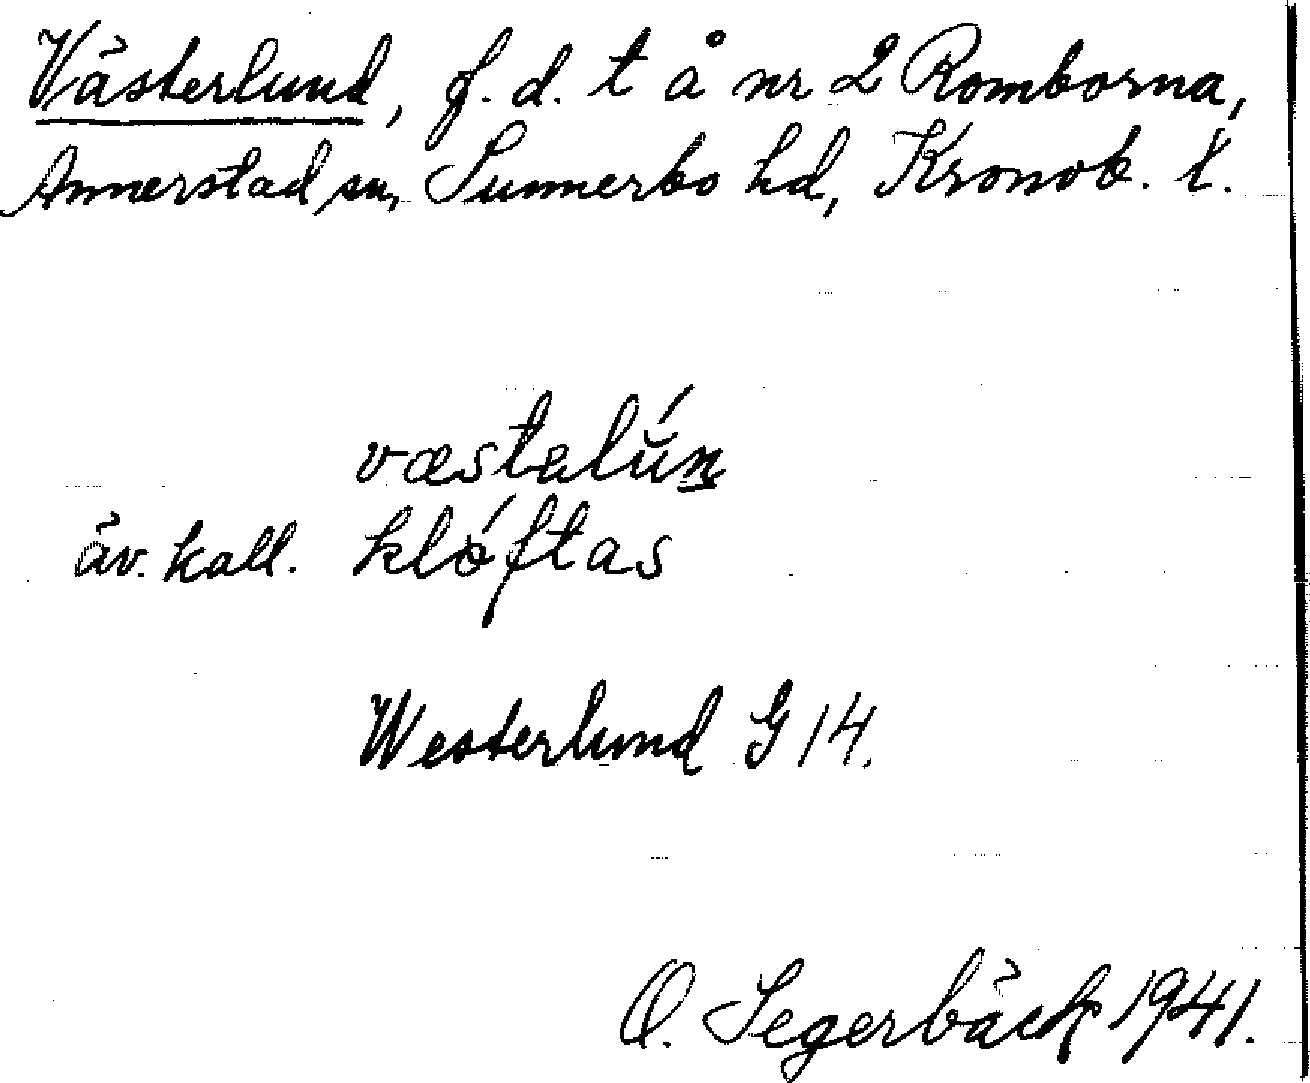 Västerlund, f. d. t å nr 2 Romborna,
Annerstad sn, Sunnerbo hd, Kronob. l.
væstalún
äv. kall. kló̈ftas
Westerlund G 14.
O. Segerbäck 1941.